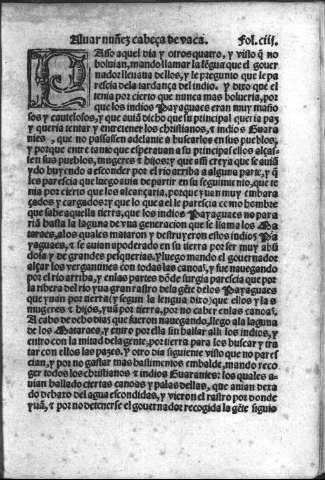 Aluar nuñez cabeça de vaca. Fol. ciij.
PAsso aquel dia y otros quatro, y visto q̃ no
boluian, mando llamar la lẽgua que el gouer
nador lleuaua dellos, y le pregunto que le pa
rescia dela tardança del indio. Y dixo que el
tenia por cierto que nunca mas bolueria, por
que los indios Payaguaes eran muy maño
sos y cautelosos, y que auia dicho que su principal queria paz
y queria tentar y entretener los christianos, ⁊ indios Guara
nies, que no passassen adelante a buscarlos en sus pueblos,
y porque entre tanto que esperauan a su principal ellos alças
sen sus pueblos, mugeres ⁊ hijos: y que assi creya que se auiã
ydo huyendo a esconder por el rio arriba a alguna parte, y q̃
les parescia que luego auia de partir en su seguimiẽnto, que te
nia por cierto que los alcançaria, porque yuan muy embara
çados y cargados: y que lo que a el le parescia como hombre
que sabe aquella tierra, que los indios Payaguaes no para
riã hasta la laguna de vna generacion que se llama los Ma
taraes, a los quales mataron y destruyeron estos indios Pa
yaguaes, ⁊ se auian apoderado en su tierra por ser muy abũ
dosa y de grandes pesquerias. Y luego mando el gouernador
alçar los vergantines con todas las canoas, y fue nauegando
por el rio arriba, y en las partes dõde surgia parescia que por
la ribera del rio yua gran rastro dela gẽte delos Payaguaes
que yuan por tierra (y segun la lengua dixo) que ellos y las
mugeres ⁊ hijos, yuã por tierra, por no caber en las canoas.
A cabo de ocho dias que fueron nauegando, llego ala laguna
de los Mataraes, y entro por ella sin hallar alli los indios, y
entro con la mitad dela gente, por tierra para los buscar y tra
tar con ellos las pazes, y otro dia siguiente visto que no pares
cian, y por no gastar mas bastimentos embalde, mando reco
ger todos los christianos ⁊ indios Guaranies: los quales a-
uian hallado ciertas canoas y palas dellas, que auian dexa
do debaxo del agua escondidas, y vieron el rastro por donde
yuã, ⁊ por no detenerse el gouernador recogida la gẽte siguio